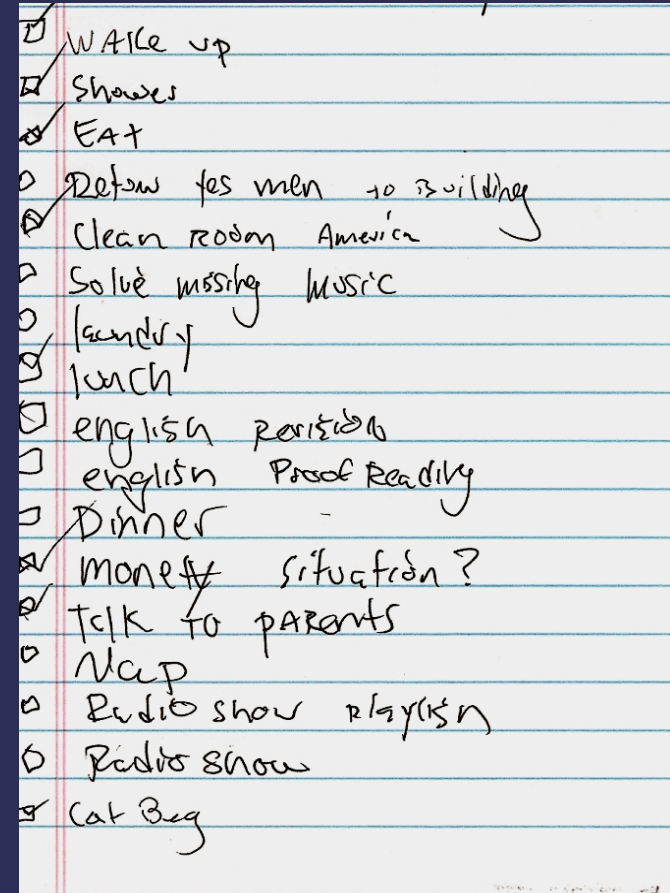 WAKe up
Shower
EAt
Return yes men to Building
Clean Room America
Solve missing Music
laundry
lunch
english Revision
english Proof Reading
Dinner
money situation?
Talk To pARents
Nap
Radio show
Radio show
Cat Bag